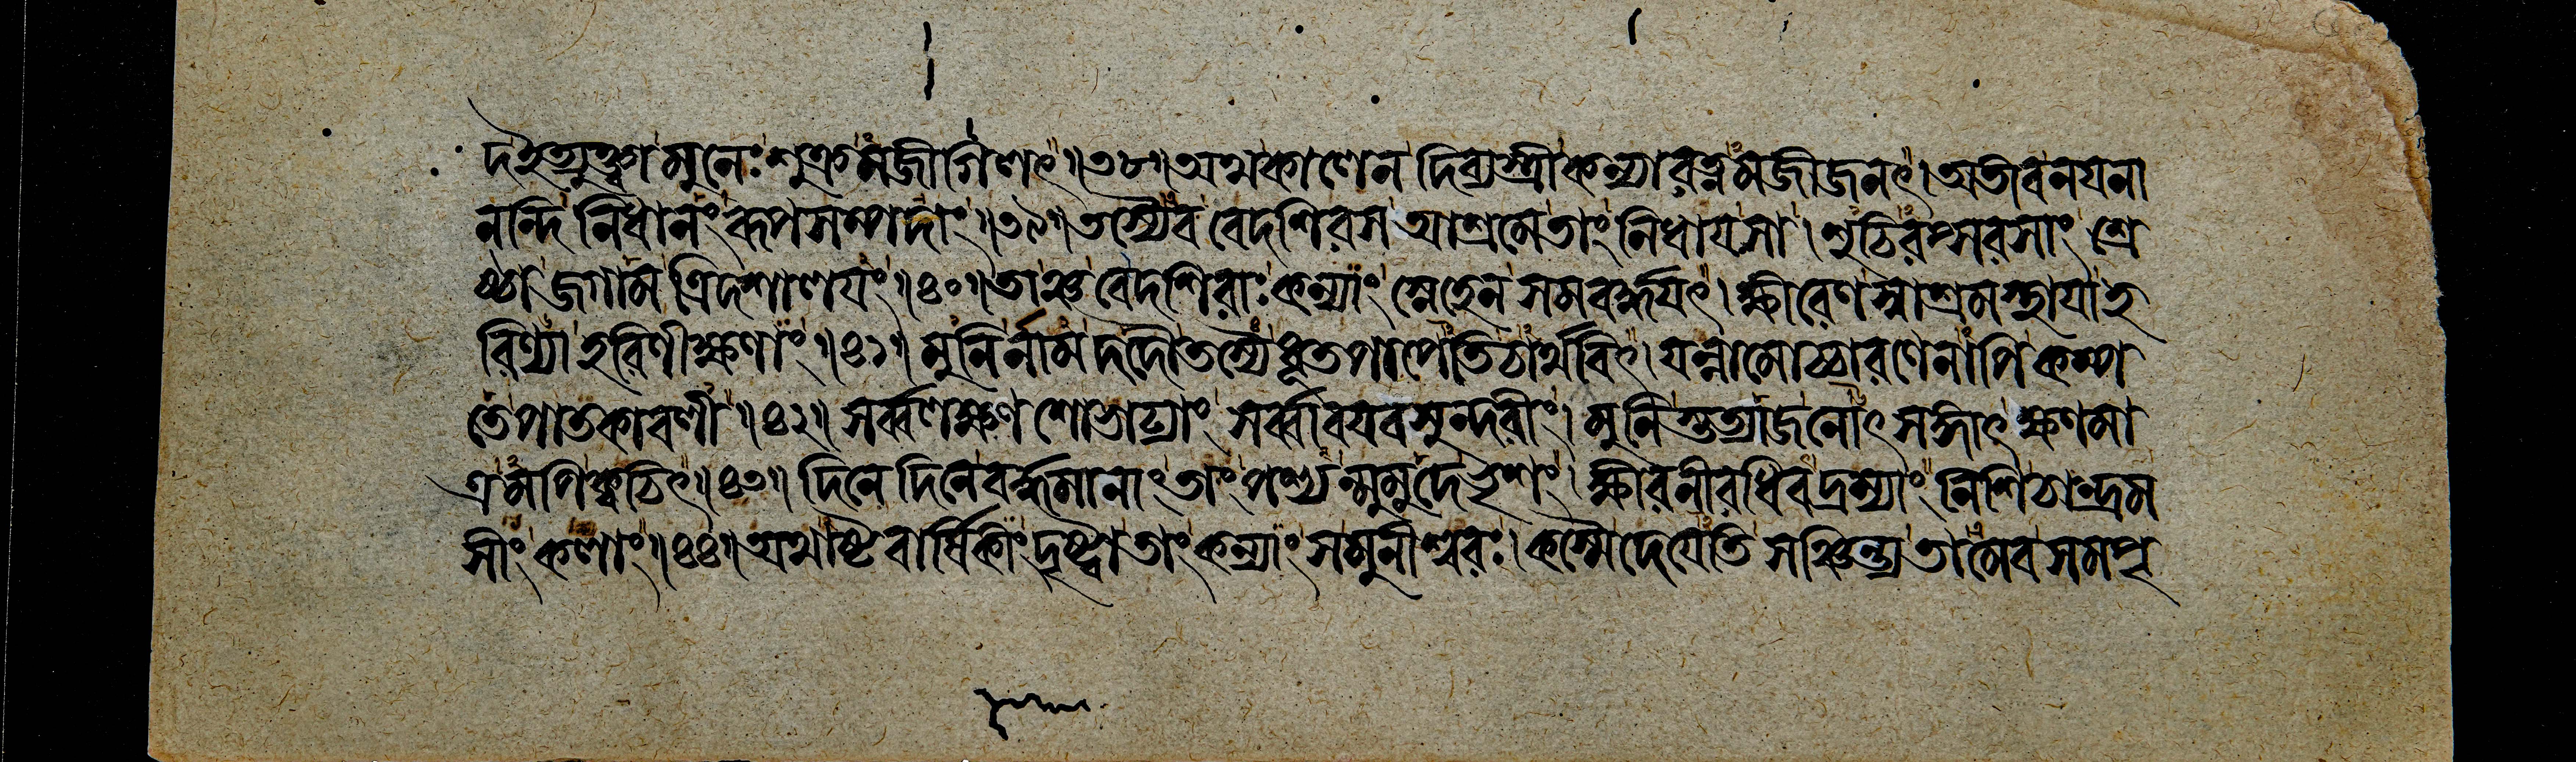 দইত্যুক্ত্বা মুনেঃ শুক্রমজীগিলৎ॥৩৮॥অথকালেন দিব্যস্ত্রীকন্যারত্নমজীজনৎ।অতীবনয়না
নন্দি নিধানং রূপসম্পদাং॥৩৯॥তস্যৈব বেদশিরস আশ্রমেতাং নিধায়সা।শুচিরপ্সরসাং শ্রে
ষ্ঠা জগাম ত্রিদশালয়ং॥৪০॥তাঞ্চ বেদশিরাঃ কন্যাং স্নেহেন সমবর্দ্ধয়ৎ।ক্ষীরেণস্বাশ্রমস্থায়া হ
রিণ্যা হরিণীক্ষণাং॥৪১॥ মুনির্নাম দদৌ তস্যৈ ধূতপাপেতি চার্থবিৎ।যন্নামোচ্চারণেনাপি কম্প
তে পাতকাবলী॥৪২॥ সর্ব্বলক্ষণ শোভাঢ্যাং সর্ব্বাবয়বসুন্দরীং।মুনিস্তত্যাজনোৎসঙ্গাৎ ক্ষণমা
ত্রমপিক্বচিৎ॥৪৩॥ দিনে দিনে বর্দ্ধমানাং তাং পশ্যন্মুমুদে ভৃশং।ক্ষীরনীরধিবদ্রম্যাং নিশিচান্দ্রম
সীং কলাং॥৪৪॥অথাষ্টবার্ষিকীংদৃষ্ট্বা তাং কন্যাং সমুনীশ্বরঃ।কস্মৈদেয়েতি সঞ্চিন্ত্য তামেব সমপৃ